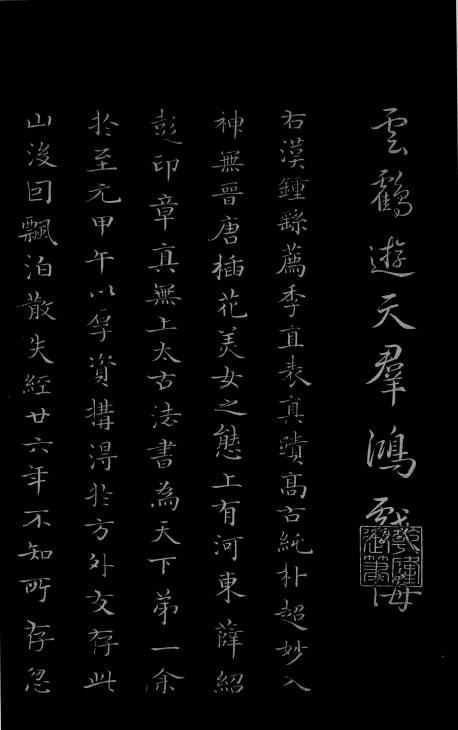 雲鶴遊天羣鴻戲海
乾隆宸翰
右漢鍾繇薦季直表真蹟高古純朴超妙入
神無晉唐插花美女之態上有河東薛紹
彭印章真無上太古法書為天下第一余
於至元甲午以厚資搆得於方外友存此
山後因飄泊散失經廿六年不知所存忽